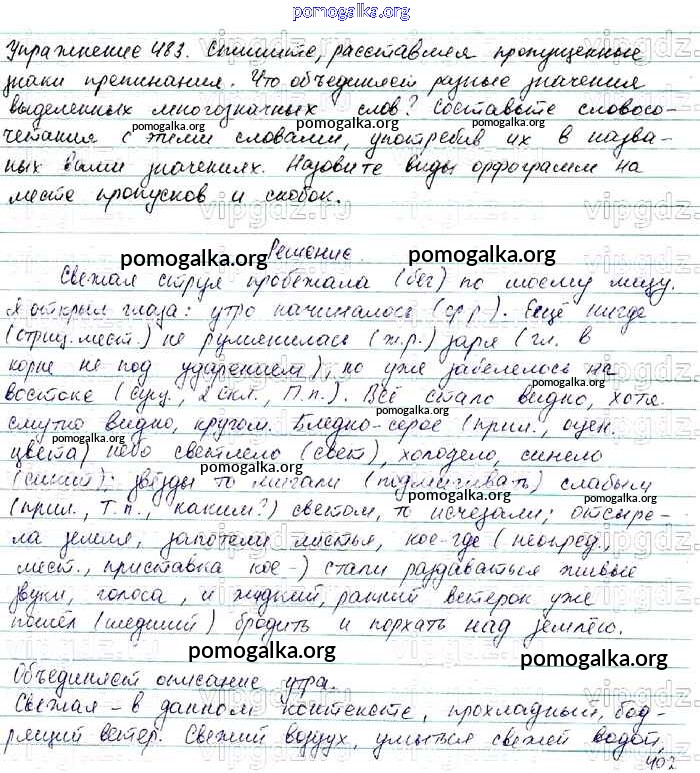 pomogalka.org
Упражнение 483. Спишите, расставляя пропущенные
знаки препинания. Что объединяет разные значения
выделенных многозначных слов? Составьте словосо-
pomogalka.org pomogalka.org
четания с этими словами, употребив их в назва-
ных вами значениях. Назовите виды орфограмм на
месте пропусков и скобок.
Решение.
pomogalka.org pomogalka.org
Свежая струя пробежала (бег) по моему лицу.
Я открыл глаза: утро начиналось (ср.р.). Ещё нигде
pomogalka.org
(отриц. мест.) не румянилась (ж.р.) заря (гл. в
корне не под ударением), но уже забелелось на
pomogalka.org
востоке (сущ., 2 скл., П.п.). Всё стало видно, хотя
смутно видно, кругом. Бледно-серое (прил., оцен.
pomogalka.org
цвета) небо светлело (свет), холодело, синело
pomogalka.org
(синий); звёзды то мигали (подмигивать) слабым
pomogalka.org
(прил., Т.п., каким?) светом, то исчезали; отсыре-
ла земля, запотели листья, кое-где (неопред.
pomogalka.org
мест., приставка кое-) стали раздаваться живые
звуки, голоса, и жидкий, ранний ветерок уже
pomogalka.org
пошёл (шедший) бродить и порхать над землёю.
pomogalka.org
Объединяет описание утра.
pomogalka.org
Свежая - в данном контексте, прохладный, бод-
рящий ветер. Свежий воздух, умыться свежей водой,
pomogalka.org
402